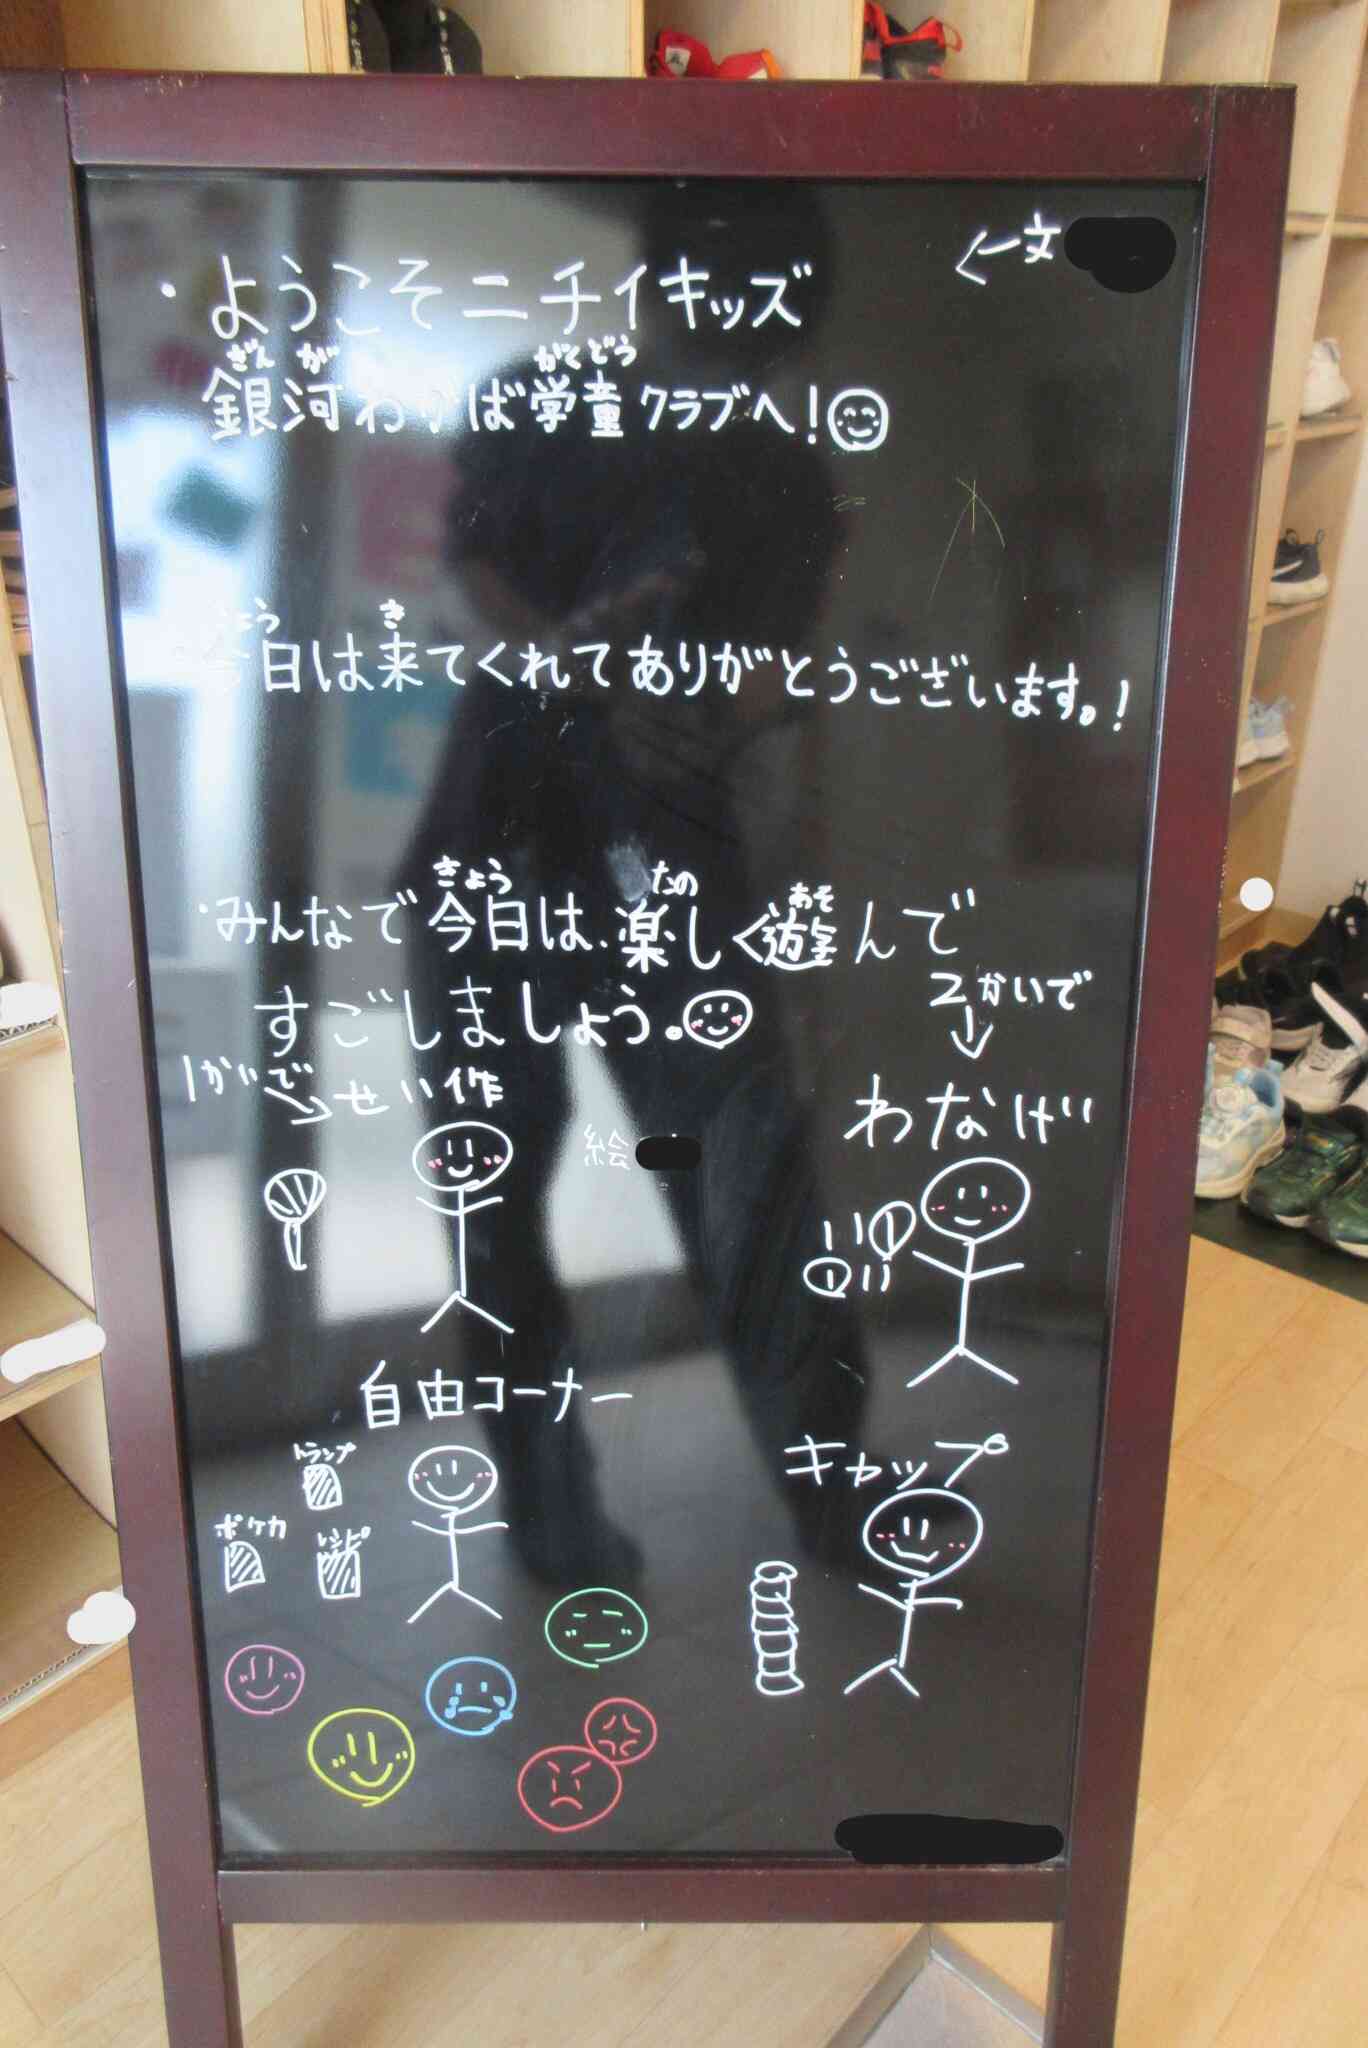 ←文
・ようこそニチイキッズ
ぎん が がくどう
銀河わかば学童クラブへ!
きょう き
今日は来てくれてありがとうございます。!
きょう たの あそ
・みんなで今日は、楽しく遊んで
すごしましょう。
1かいで→せい作
2かいで
↓
わなげ
絵
自由コーナー
トランプ
ポケカ
キャップ